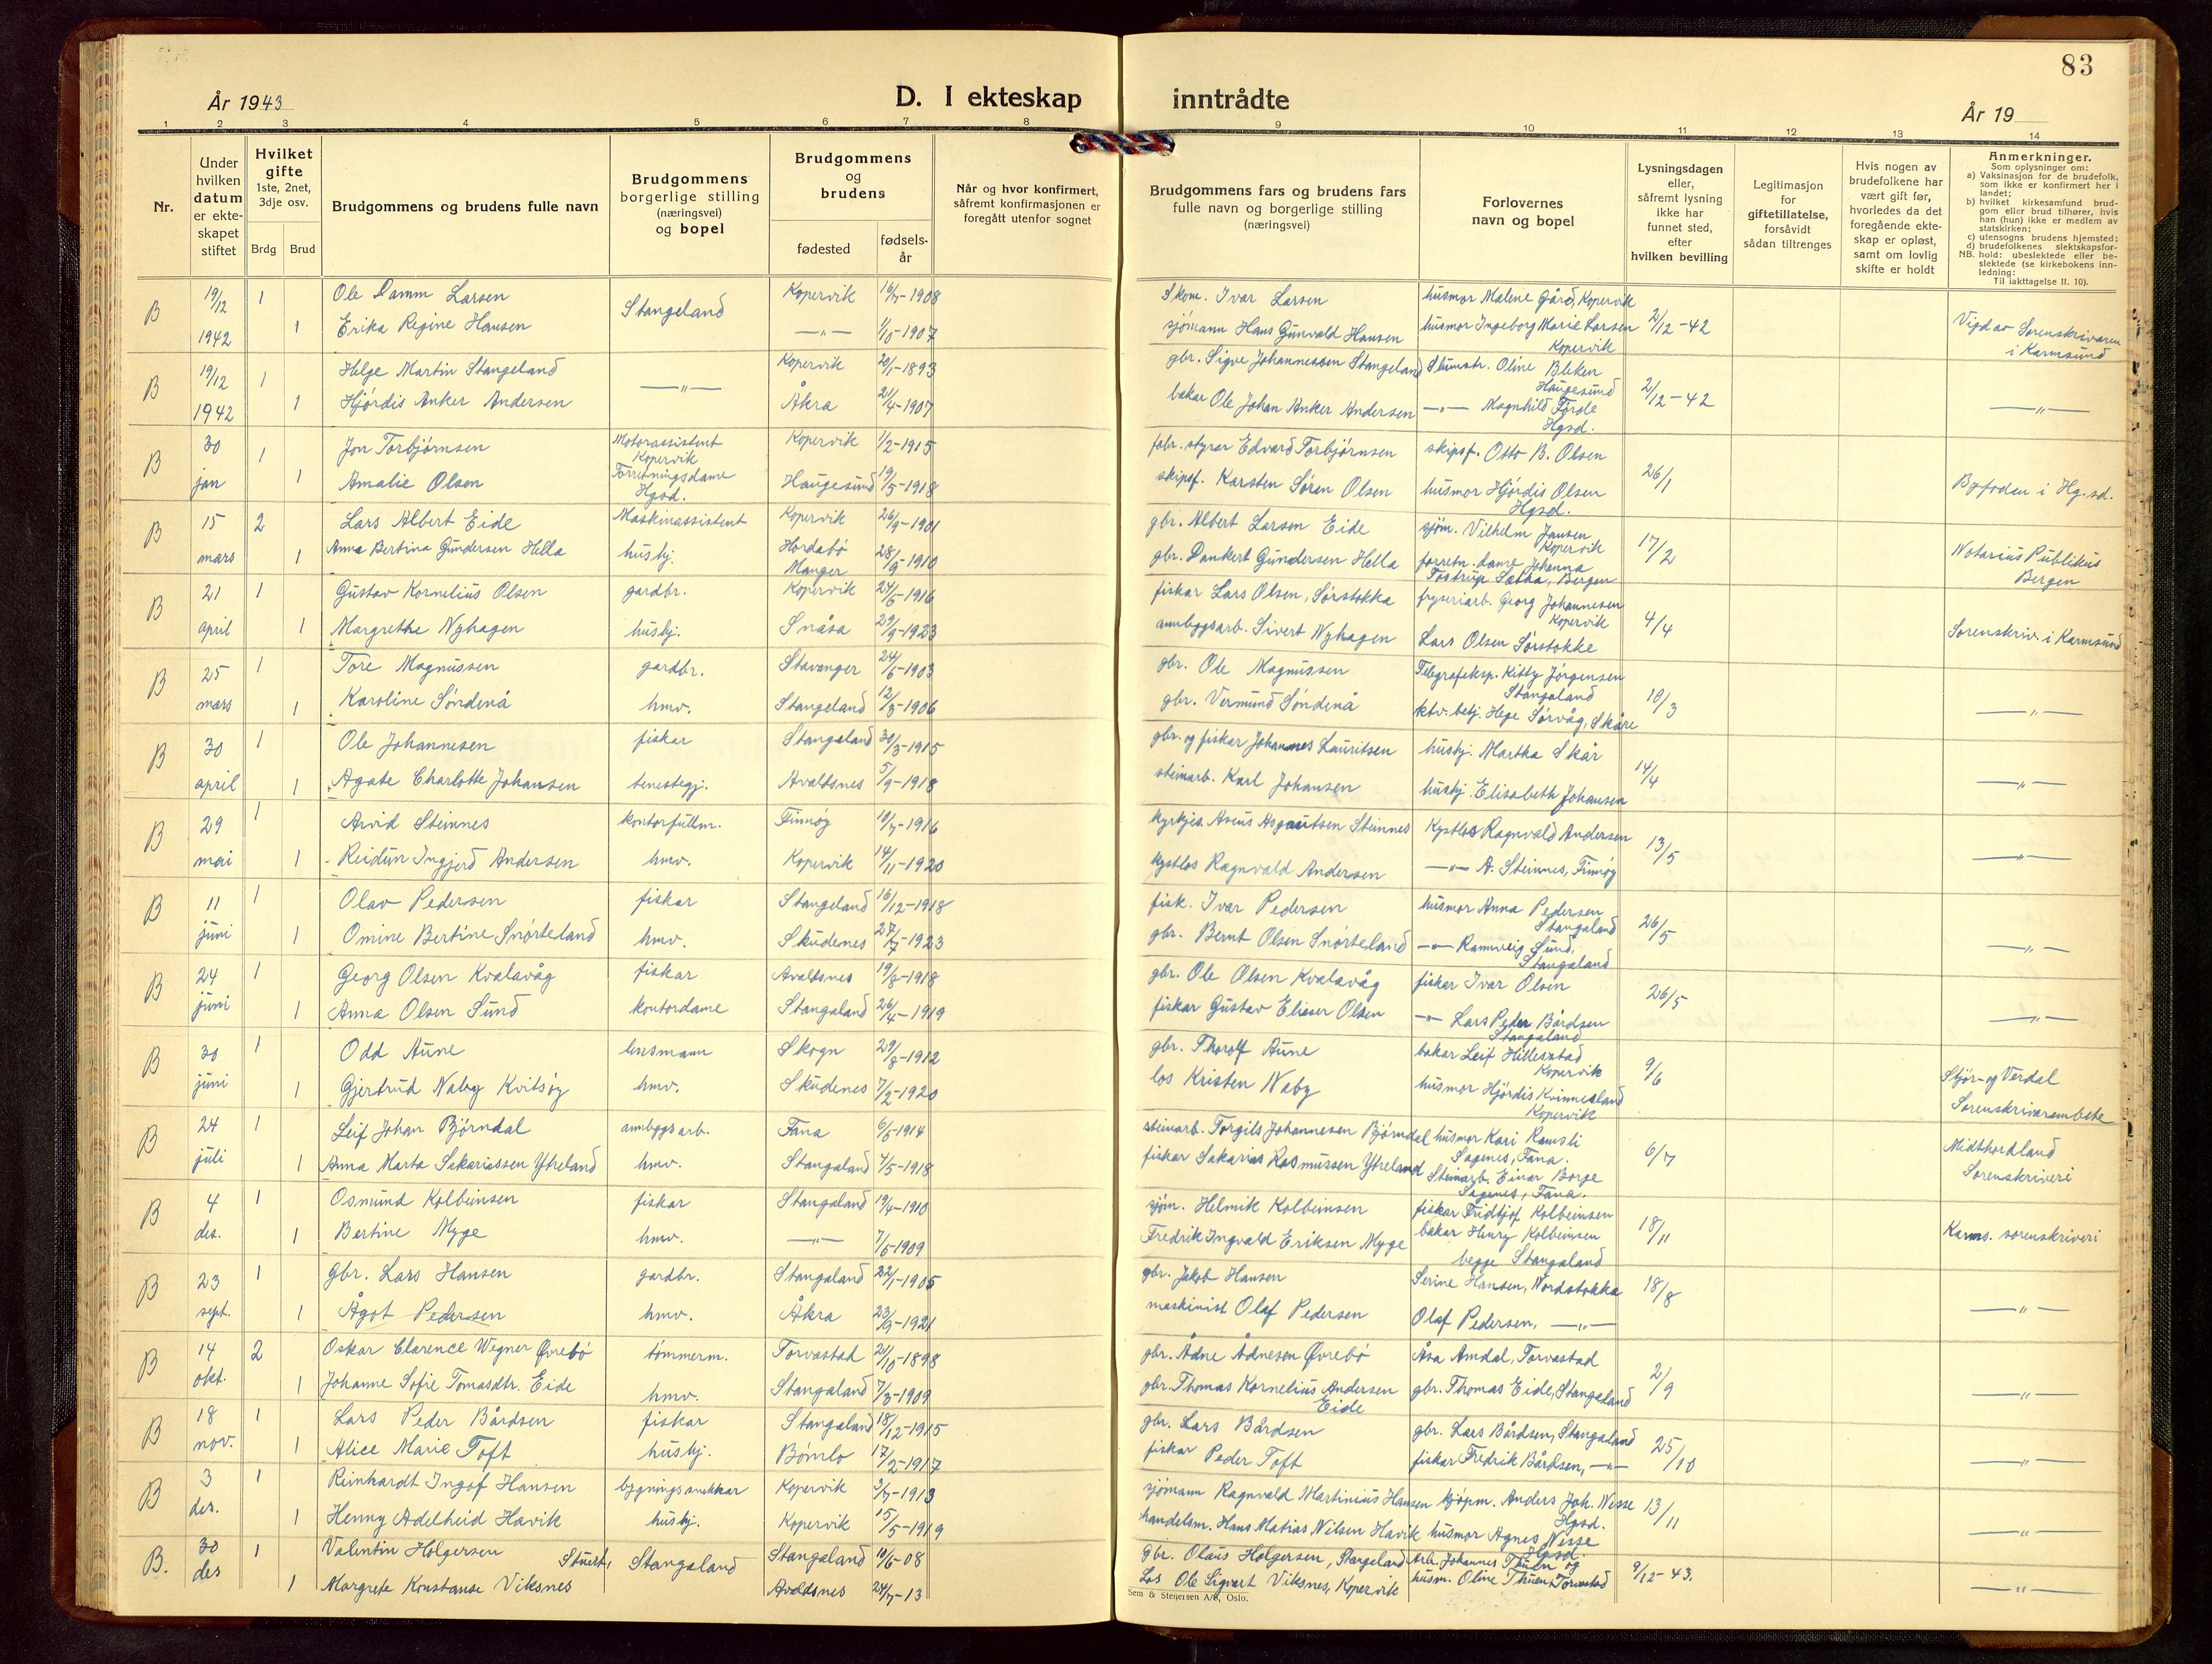 83
År 1943
D. I ekteskap inntrådte
År 19
1 2 3 4 5 6 7 8 9 10 11 12 13 14
Nr.
Under hvilken datum er ekteskapet stiftet
Hvilket gifte 1ste, 2net, 3dje osv.
Brdg Brud
Brudgommens og brudens fulle navn
Brudgommens borgerlige stilling (næringsvei) og bopel
Brudgommens og brudens
fødested
fødselsår
Når og hvor konfirmert, såfremt konfirmasjonen er foregått utenfor sognet
Brudgommens fars og brudens fars fulle navn og borgerlige stilling (næringsvei)
Forlovernes navn og bopel
Lysningsdagen eller, såfremt lysning ikke har funnet sted, efter hvilken bevilling
Legitimasjon for giftetillatelse, forsåvidt sådan tiltrenges
Hvis nogen av brudefolkene har vært gift før, hvorledes da det foregående ekteskap er opløst, samt om lovlig skifte er holdt
Anmerkninger.
Som oplysninger om:
a) Vaksinasjon for de brudefolk, som ikke er konfirmert her i landet;
b) hvilket kirkesamfund brudgom eller brud tilhører, hvis han (hun) ikke er medlem av statskirken;
c) utensogns brudens hjemsted;
d) brudefolkenes slektskapsforhold: ubeslektede eller beslektede (se kirkebokens innledning: Til iakttagelse II. 10).
NB.
B 19/12 1 Ole Damm Larsen Stangeland Kopervik 16/7-1908 Skom. Ivar Larsen husmor Malene Gård, Kopervik 2/12-42 Vigd av Sorenskrivaren
1942 1 Erika Regine Hansen —"— 1/10-1907 sjömann Hans Gunvald Hansen husmor Ingeborg Marie Larsen Kopervik i Karmsund
B 19/12 1 Helge Martin Stangeland —"— Kopervik 20/1-1893 gbr. Sigve Johannessen Stangeland Oline Bleken Haugesund 2/12-42
1942 1 Hjördis Anker Andersen Åkra 21/4-1907 bakar Ole Johan Anker Andersen —"— Magnhild Förde Hgsd. —"—
B 30 1 Jon Torbjörnsen Motorassistent Kopervik Kopervik 1/2-1915 fabr. styrar Edvard Torbjörnsen skipsf. Otto B. Olsen 26/1
jan 1 Amalie Olsen Forretningsdame Hgsd. Haugesund 19/5-1918 skipsf. Karsten Sören Olsen husmor Hjördis Olsen Hgsd. Byfoden i Hg.sd.
B 15 2 Lars Albert Eide Maskinassistent Kopervik 26/9-1901 gbr. Albert Larsen Eide sjöm. Vilhelm Jansen Kopervik 17/2
mars 1 Anna Bertina Gundersen Hella husbj. Hordabö Manger 28/9-1910 gbr. Dankert Gundersen Hella forretn. dame Johanna Tostrup Sætha, Bergen Notarius Publikus Bergen
B 21 1 Gustav Kornelius Olsen gardbr. Kopervik 24/6-1916 fiskar Lars Olsen, Sörstokka fryseriarb. Georg Johannesen Kopervik 4/4
april 1 Margrethe Nyhagen husbj. Snåsa 29/9-1923 annleggsarb. Sivert Nyhagen Lars Olsen Sörstokke Sorenskriv. i Karmsund
B 25 1 Tore Magnussen gardbr. Stavanger 24/6-1903 gbr. Ole Magnussen Telegrafeksp. Kitty Jörgensen Stangaland 10/3
mars 1 Karoline Söndenå hmv. Stangeland 12/3-1906 gbr. Vermund Söndenå ktv. betj. Hege Sörvåg, Skåre —"—
B 30 1 Ole Johannesen fiskar Stangaland 30/3-1915 gbr. og fiskar Johannes Lauritsen husbj. Martha Skår 14/4
april 1 Agate Charlotte Johansen tenestegj. Avaldsnes 5/9-1918 steinarb. Karl Johansen husbj. Elisabeth Johansen —"—
B 29 1 Arvid Steinnes kontorfullm. Finnøy 10/7-1916 kyrkjes. Asgautsen Steinnes Kystlos Ragnvald Andersen 13/5
mai 1 Reidun Ingjerd Andersen hmv. Kopervik 14/11-1920 kystlos Ragnvald Andersen —"— A. Steinnes, Finnøy —"—
B 11 1 Olav Pedersen fiskar Stangeland 16/12-1918 fisk. Ivar Pedersen husmor Anna Pedersen Stangaland 26/5
juni 1 Omine Bertine Snörteland hmv. Skudenes 27/7-1923 gbr. Bernt Olsen Snörteland —"— Rannveig Sund, Stangaland —"—
B 24 1 Georg Olsen Kvalavåg fiskar Avaldsnes 19/8-1918 gbr. Ole Olsen Kvalavåg fiskar Ivar Olsen 26/5
juni 1 Anna Olsen Sund kontordame Stangaland 26/4-1919 fiskar Gustav Elieser Olsen —"— Lars Peder Bårdsen Stangaland —"—
B 30 1 Odd Aune lensmann Skogn 29/8-1912 gbr. Thorolf Aune bakar Leif Hillesstad Kopervik 9/6 Stjör- og Verdal
juni 1 Gjertrud Naby Kvitsöy hmv. Skudenes 7/2-1920 los Kristen Naby husmor Hjördis Kvinnesland Kopervik Sorenskrivarembete
B 24 1 Leif Johan Björndal annleggsarb. Fana 6/5-1914 steinarb. Torgils Johannesen Björndal husmor Kari Ramsli Sagenes, Fana. 6/7 Midthordland
juli 1 Anna Marta Sakariassen Ytreland hmv. Stangaland 4/5-1918 fiskar Sakarias Rasmussen Ytreland Steinarb. Einar Borge Sagenes, Fana. Sorenskriveri
B 4 1 Osmund Kolbeinsen fiskar Stangaland 19/4-1910 sjöm. Helmik Kolbeinsen fiskar Fridtjof Kolbeinsen 18/11 Karms. sorenskriveri
des. 1 Bertine Myge hmv. —"— 7/5-1909 Fredrik Ingvald Eriksen Myge bakar Henry Kolbeinsen begge Stangaland
B 23 1 gbr. Lars Hansen gardbr. Stangaland 22/1-1905 gbr. Jakob Hansen Serine Hansen, Nordstokka 18/8
sept. 1 Ågot Pedersen hmv. Åkra 23/9-1921 maskinist Olaf Pedersen Olaf Pedersen, —"— —"—
B 14 2 Oskar Clarence Wegner Øvrebö tömmerm. Torvastad 20/10-1898 gbr. Ådne Ådnesen Øvrebö Åsa Amdal, Torvastad 2/9
okt. 1 Johanne Sofie Tomasdtr. Eide hmv. Stangaland 7/3-1909 gbr. Thomas Kornelius Andersen Eide gbr. Thomas Eide, Stangeland —"—
B 18 1 Lars Peder Bårdsen fiskar Stangaland 18/12-1915 gbr. Lars Bårdsen gbr. Lars Bårdsen, Stangaland 25/10
nov. 1 Alice Marie Toft husbj. Bömlo 17/2-1917 fiskar Peder Toft fiskar Fredrik Bårdsen, —"— —"—
B 3 1 Reinhardt Ingof Hansen bygningssnekkar Kopervik 3/7-1913 sjömann Ragnvald Martinius Hansen kjöpm. Anders Joh. Nesse Hgsd. 13/11
des. 1 Henny Adelheid Havik husbj. Kopervik 15/5-1919 handelsm. Hans Matias Nilsen Havik husmor Agnes Nesse Hgsd. —"—
B. 30 1 Valentin Holgersen Stuert, Stangaland Stangaland 10/6-08 Gbr. Olaus Holgersen, Stangeland Arb. Johannes Thuen og 9/12-43.
des 1 Margrete Konstanse Viksnes Avaldsnes 24/7-13 Los Ole Sigvart Viksnes, Kopervik husm. Oline Thuen Torvastad —"—
Sem & Stenersen A/S, Oslo.